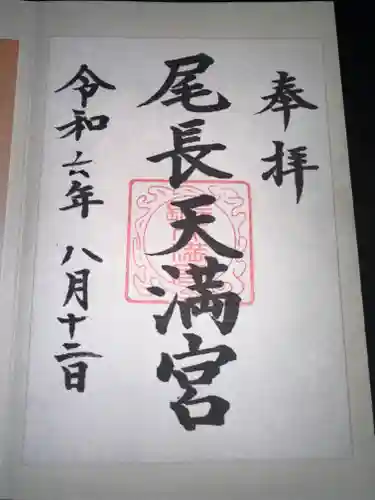 奉拝
尾長天満宮
令和六年八月十二日